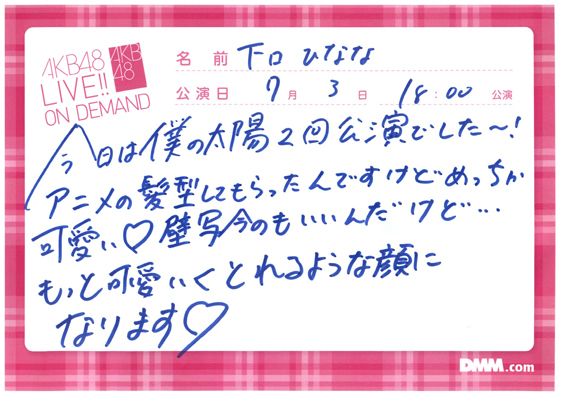 AKB48
LIVE!!
ON DEMAND
AKB
48
名前 下口 ひなな
公演日 7月 3日 18:00 公演
今日は僕の太陽2回公演でした〜!
アニメの髪型してもらったんですけどめっちゃ
可愛い♡壁写今のもいいんだけど…
もっと可愛いくとれるような顔に
なります♡
DMM.com